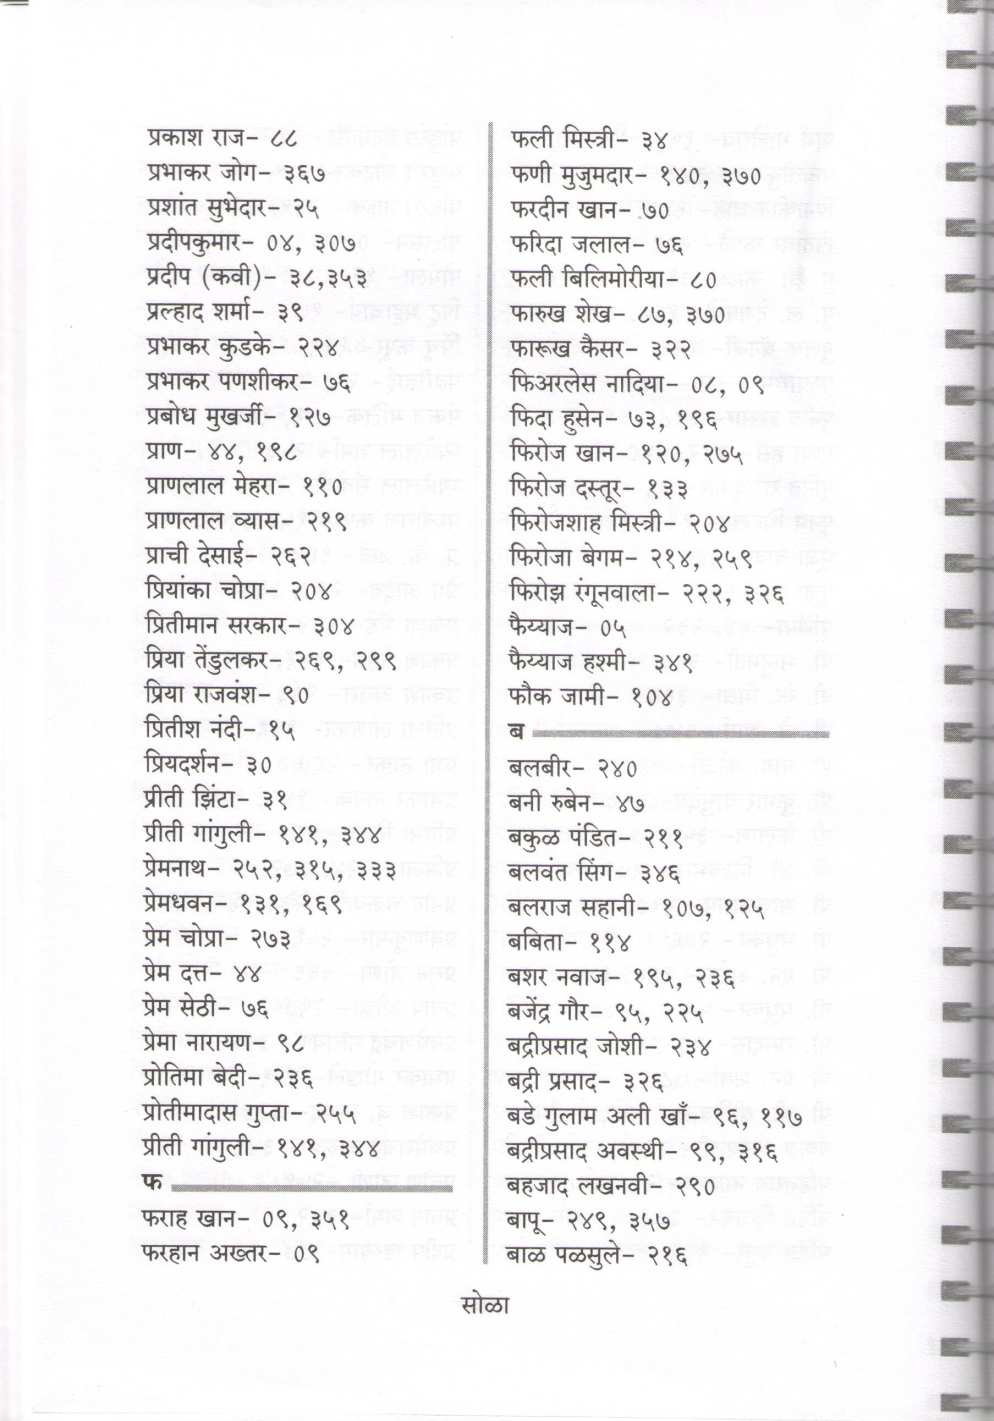 प्रकाश राज– ८८
प्रभाकर जोग– ३६७
प्रशांत सुभेदार– २५
प्रदीपकुमार– ०४, ३०७
प्रदीप (कवी)– ३८,३५३
प्रल्हाद शर्मा– ३९
प्रभाकर कुडके– २२४
प्रभाकर पणशीकर– ७६
प्रबोध मुखर्जी– १२७
प्राण– ४४, १९८
प्राणलाल मेहरा– ११०
प्राणलाल व्यास– २१९
प्राची देसाई– २६२
प्रियांका चोप्रा– २०४
प्रितीमान सरकार– ३०४
प्रिया तेंडुलकर– २६९, २९९
प्रिया राजवंश– ९०
प्रितीश नंदी– १५
प्रियदर्शन– ३०
प्रीती झिंटा– ३१
प्रीती गांगुली– १४१, ३४४
प्रेमनाथ– २५२, ३१५, ३३३
प्रेमधवन– १३१, १६९
प्रेम चोप्रा– २७३
प्रेम दत्त– ४४
प्रेम सेठी– ७६
प्रेमा नारायण– ९८
प्रोतिमा बेदी– २३६
प्रोतीमादास गुप्ता– २५५
प्रीती गांगुली– १४१, ३४४
फ
फराह खान– ०९, ३५१
फरहान अख्तर– ०९
फली मिस्त्री– ३४
फणी मुजुमदार– १४०, ३७०
फरदीन खान– ७०
फरिदा जलाल– ७६
फली बिलिमोरीया– ८०
फारुख शेख– ८७, ३७०
फारूख कैसर– ३२२
फिअरलेस नादिया– ०८, ०९
फिदा हुसेन– ७३, १९६
फिरोज खान– १२०, २७५
फिरोज दस्तूर– १३३
फिरोजशाह मिस्त्री– २०४
फिरोजा बेगम– २१४, २५९
फिरोझ रंगूनवाला– २२२, ३२६
फैय्याज– ०५
फैय्याज हश्मी– ३४१
फौक जामी– १०४
ब
बलबीर– २४०
बनी रुबेन– ४७
बकुळ पंडित– २११
बलवंत सिंग– ३४६
बलराज सहानी– १०७, १२५
बबिता– ११४
बशर नवाज– १९५, २३६
बजेंद्र गौर– ९५, २२५
बद्रीप्रसाद जोशी– २३४
बद्री प्रसाद– ३२६
बडे गुलाम अली खाँ– ९६, ११७
बद्रीप्रसाद अवस्थी– ९९, ३१६
बहजाद लखनवी– २९०
बापू– २४९, ३५७
बाळ पळसुले– २१६
सोळा